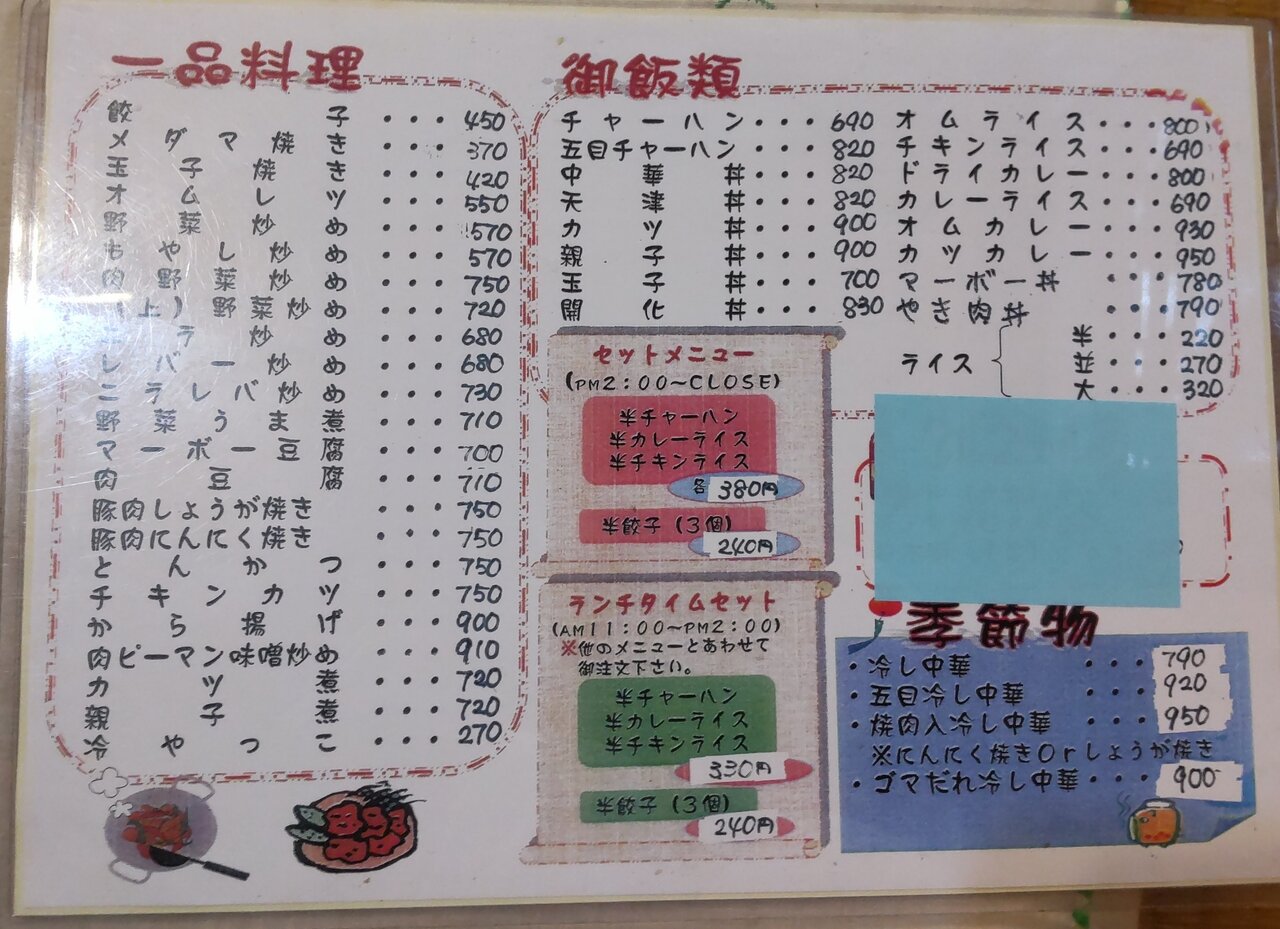 一品料理
餃子・・・450
メダマ焼き・・・370
玉子焼き・・・420
オムレツ・・・550
野菜炒め・・・570
もやし炒め・・・570
肉野菜炒め・・・750
(上)野菜炒め・・・720
ニラ炒め・・・680
レバー炒め・・・680
ニラレバ炒め・・・730
野菜うま煮・・・710
マーボー豆腐・・・700
肉豆腐・・・710
豚肉しょうが焼き・・・750
豚肉にんにく焼き・・・750
とんかつ・・・750
チキンカツ・・・750
から揚げ・・・900
肉ピーマン味噌炒め・・・910
カツ煮・・・720
親子煮・・・720
冷やっこ・・・270
御飯類
チャーハン・・・690
五目チャーハン・・・820
中華丼・・・820
天津丼・・・820
カツ丼・・・900
親子丼・・・900
玉子丼・・・700
開化丼・・・830
オムライス・・・800
チキンライス・・・690
ドライカレー・・・800
カレーライス・・・690
オムカレー・・・930
カツカレー・・・950
マーボー丼・・・780
やき肉丼・・・790
ライス
半・・・220
並・・・270
大・・・320
セットメニュー
(PM2:00~CLOSE)
半チャーハン
半カレーライス
半チキンライス
各380円
半餃子(3個)
240円
ランチタイムセット
(AM11:00~PM2:00)
※他のメニューとあわせて
御注文下さい。
半チャーハン
半カレーライス
半チキンライス
330円
半餃子(3個)
240円
季節物
・冷し中華・・・790
・五目冷し中華・・・920
・焼肉入冷し中華・・・950
※にんにく焼きOrしょうが焼き
・ゴマだれ冷し中華・・・900